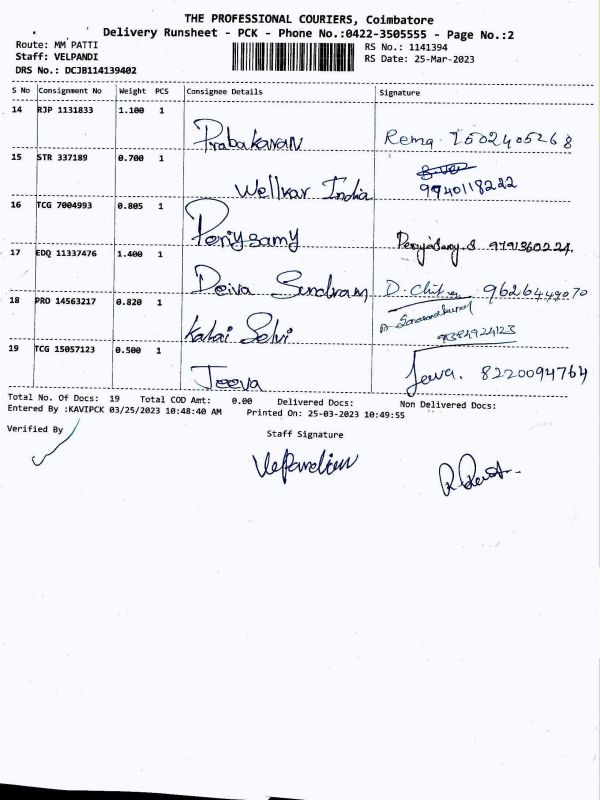 THE PROFESSIONAL COURIERS, Coimbatore
Delivery Runsheet - PCK - Phone No.:0422-3505555 - Page No.:2
Route: MM PATTI RS No.: 1141394
Staff: VELPANDI RS Date: 25-Mar-2023
DRS No.: DCJB114139402
S No Consignment No Weight PCS Consignee Details Signature
14 RJP 1131833 1.100 1
Prabakaran Rema
15 STR 337189 0.700 1
Wellkar India 9940118222
16 TCG 7004993 0.805 1
Periysamy
17 EDQ 11337476 1.400 1
Deiva Sundram 9626449070
18 PRO 14563217 0.820 1
Kalai Selvi
19 TCG 15057123 0.500 1
Jeeva Jeeva. 8220094764
Total No. Of Docs: 19 Total COD Amt: 0.00 Delivered Docs: Non Delivered Docs:
Entered By :KAVIPCK 03/25/2023 10:48:40 AM Printed On: 25-03-2023 10:49:55
Verified By Staff Signature